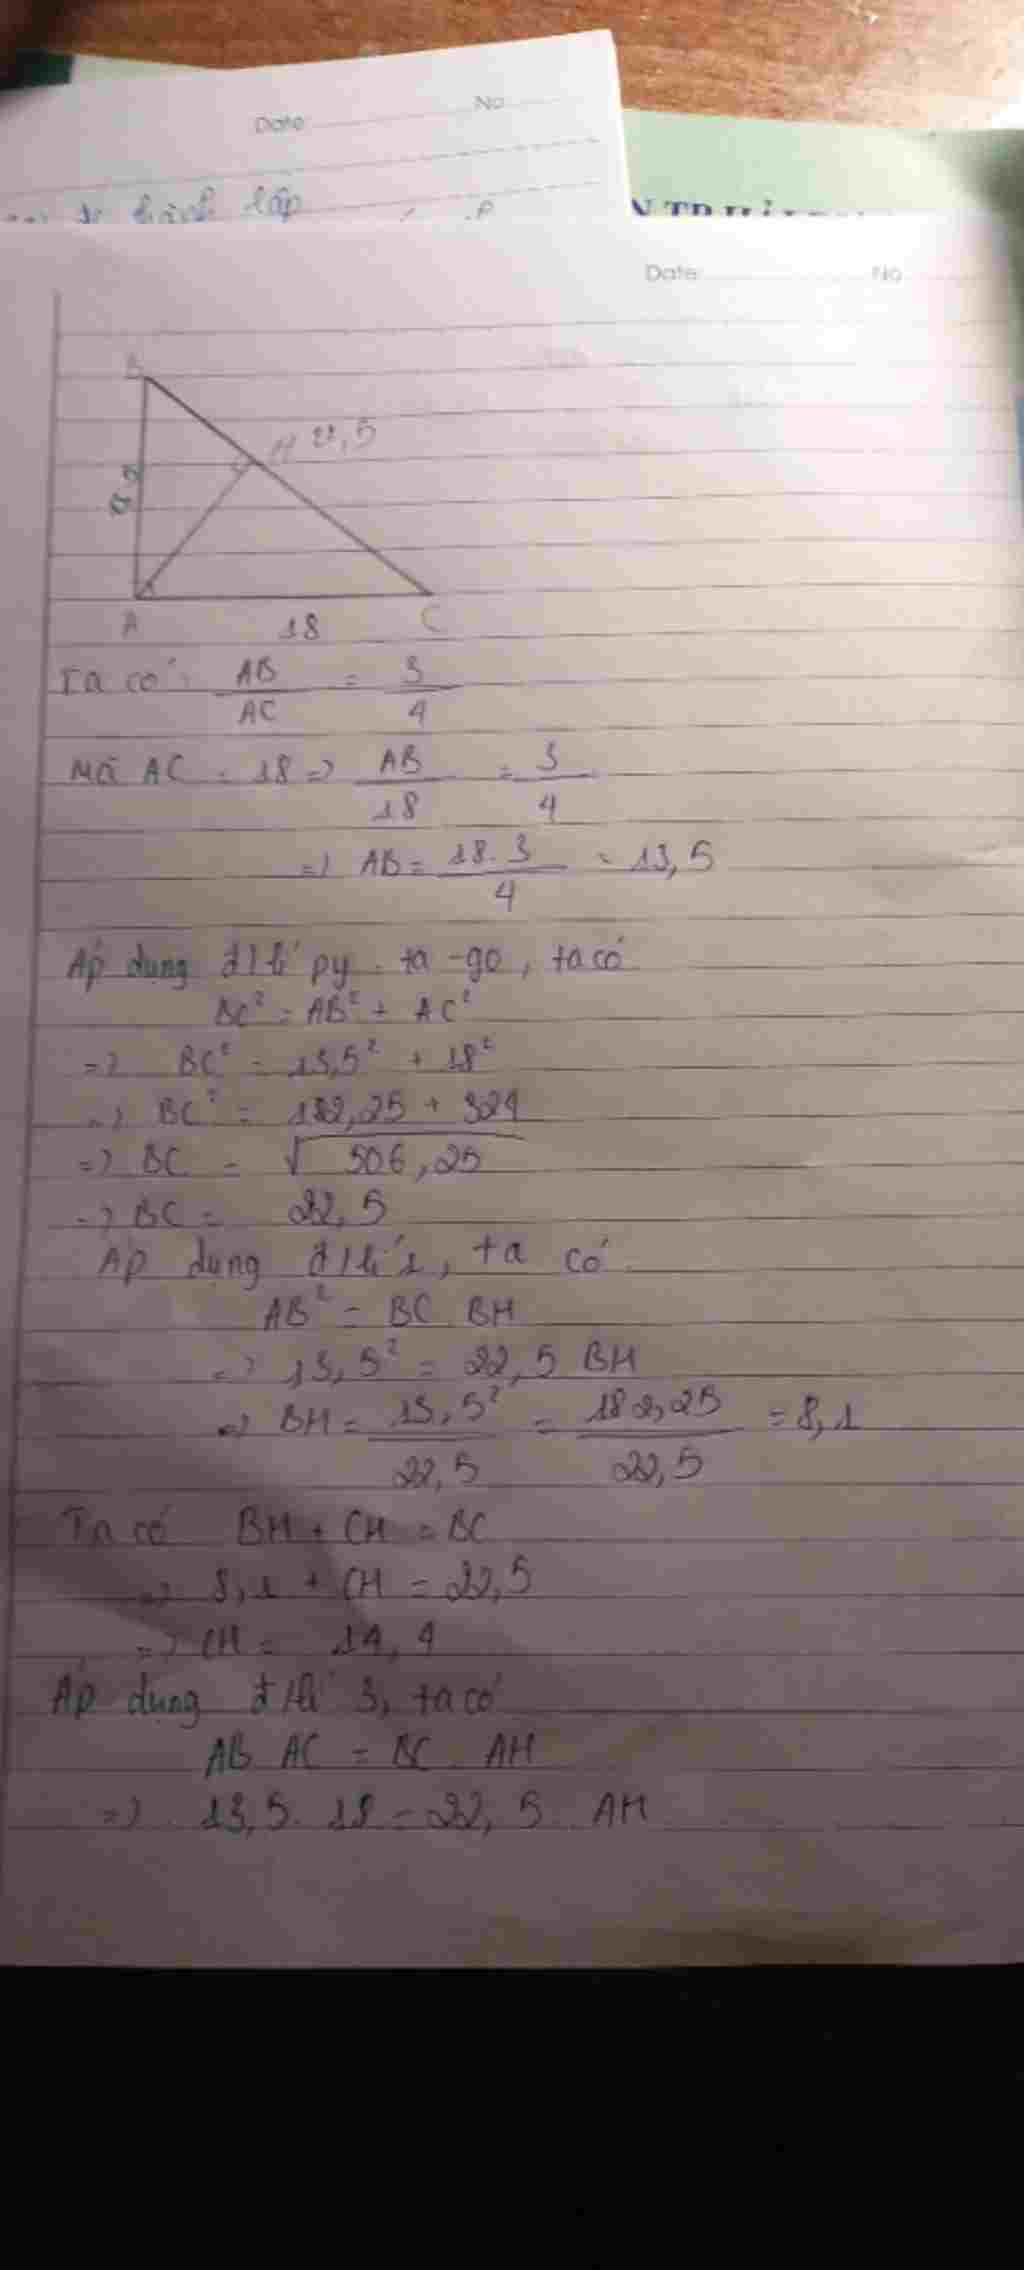 Date No
lập
Date No
B
H 22,5
A 18 C
Ta có: AB/AC = 3/4
Mà AC = 18 => AB/18 = 3/4
=> AB = 18.3/4 = 13,5
Áp dụng đ/lí py-ta-go, ta có
BC² = AB² + AC²
=> BC² = 13,5² + 18²
=> BC² = 182,25 + 324
=> BC = √506,25
=> BC = 22,5
Áp dụng đ/lí 1, ta có
AB² = BC BH
=> 13,5² = 22,5 BH
=> BH = 13,5²/22,5 = 182,25/22,5 = 8,1
Ta có BH + CH = BC
=> 8,1 + CH = 22,5
=> CH = 14,4
Áp dụng đ/lí 3, ta có
AB AC = BC . AH
=> 13,5. 18 = 22,5 AH